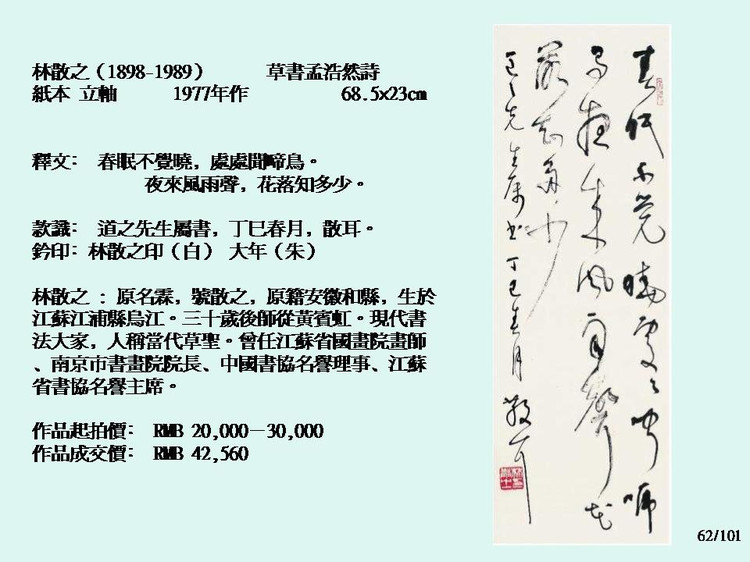 林散之（1898-1989）　　草書孟浩然詩
紙本 立軸　　1977年作　　68.5x23cm
釋文：　春眠不覺曉，處處聞啼鳥。
夜來風雨聲，花落知多少。
款識：　道之先生屬書，丁巳春月，散耳。
鈐印：林散之印（白）　大年（朱）
林散之 : 原名霖，號散之，原籍安徽和縣，生於
江蘇江浦縣烏江。三十歲後師從黃賓虹。現代書
法大家，人稱當代草聖。曾任江蘇省國畫院畫師
、南京市書畫院院長、中國書協名譽理事、江蘇
省書協名譽主席。
作品起拍價：　RMB 20,000－30,000
作品成交價：　RMB 42,560
春眠不覺曉處處聞啼
鳥夜來風雨聲花
落知多少
道之先生屬書丁巳春月 散耳
62/101